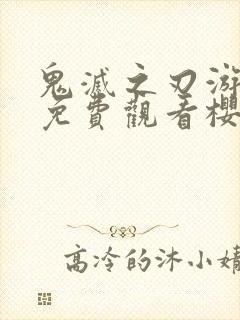 鬼滅之刃游
免費觀看櫻
高冷的沐小婧